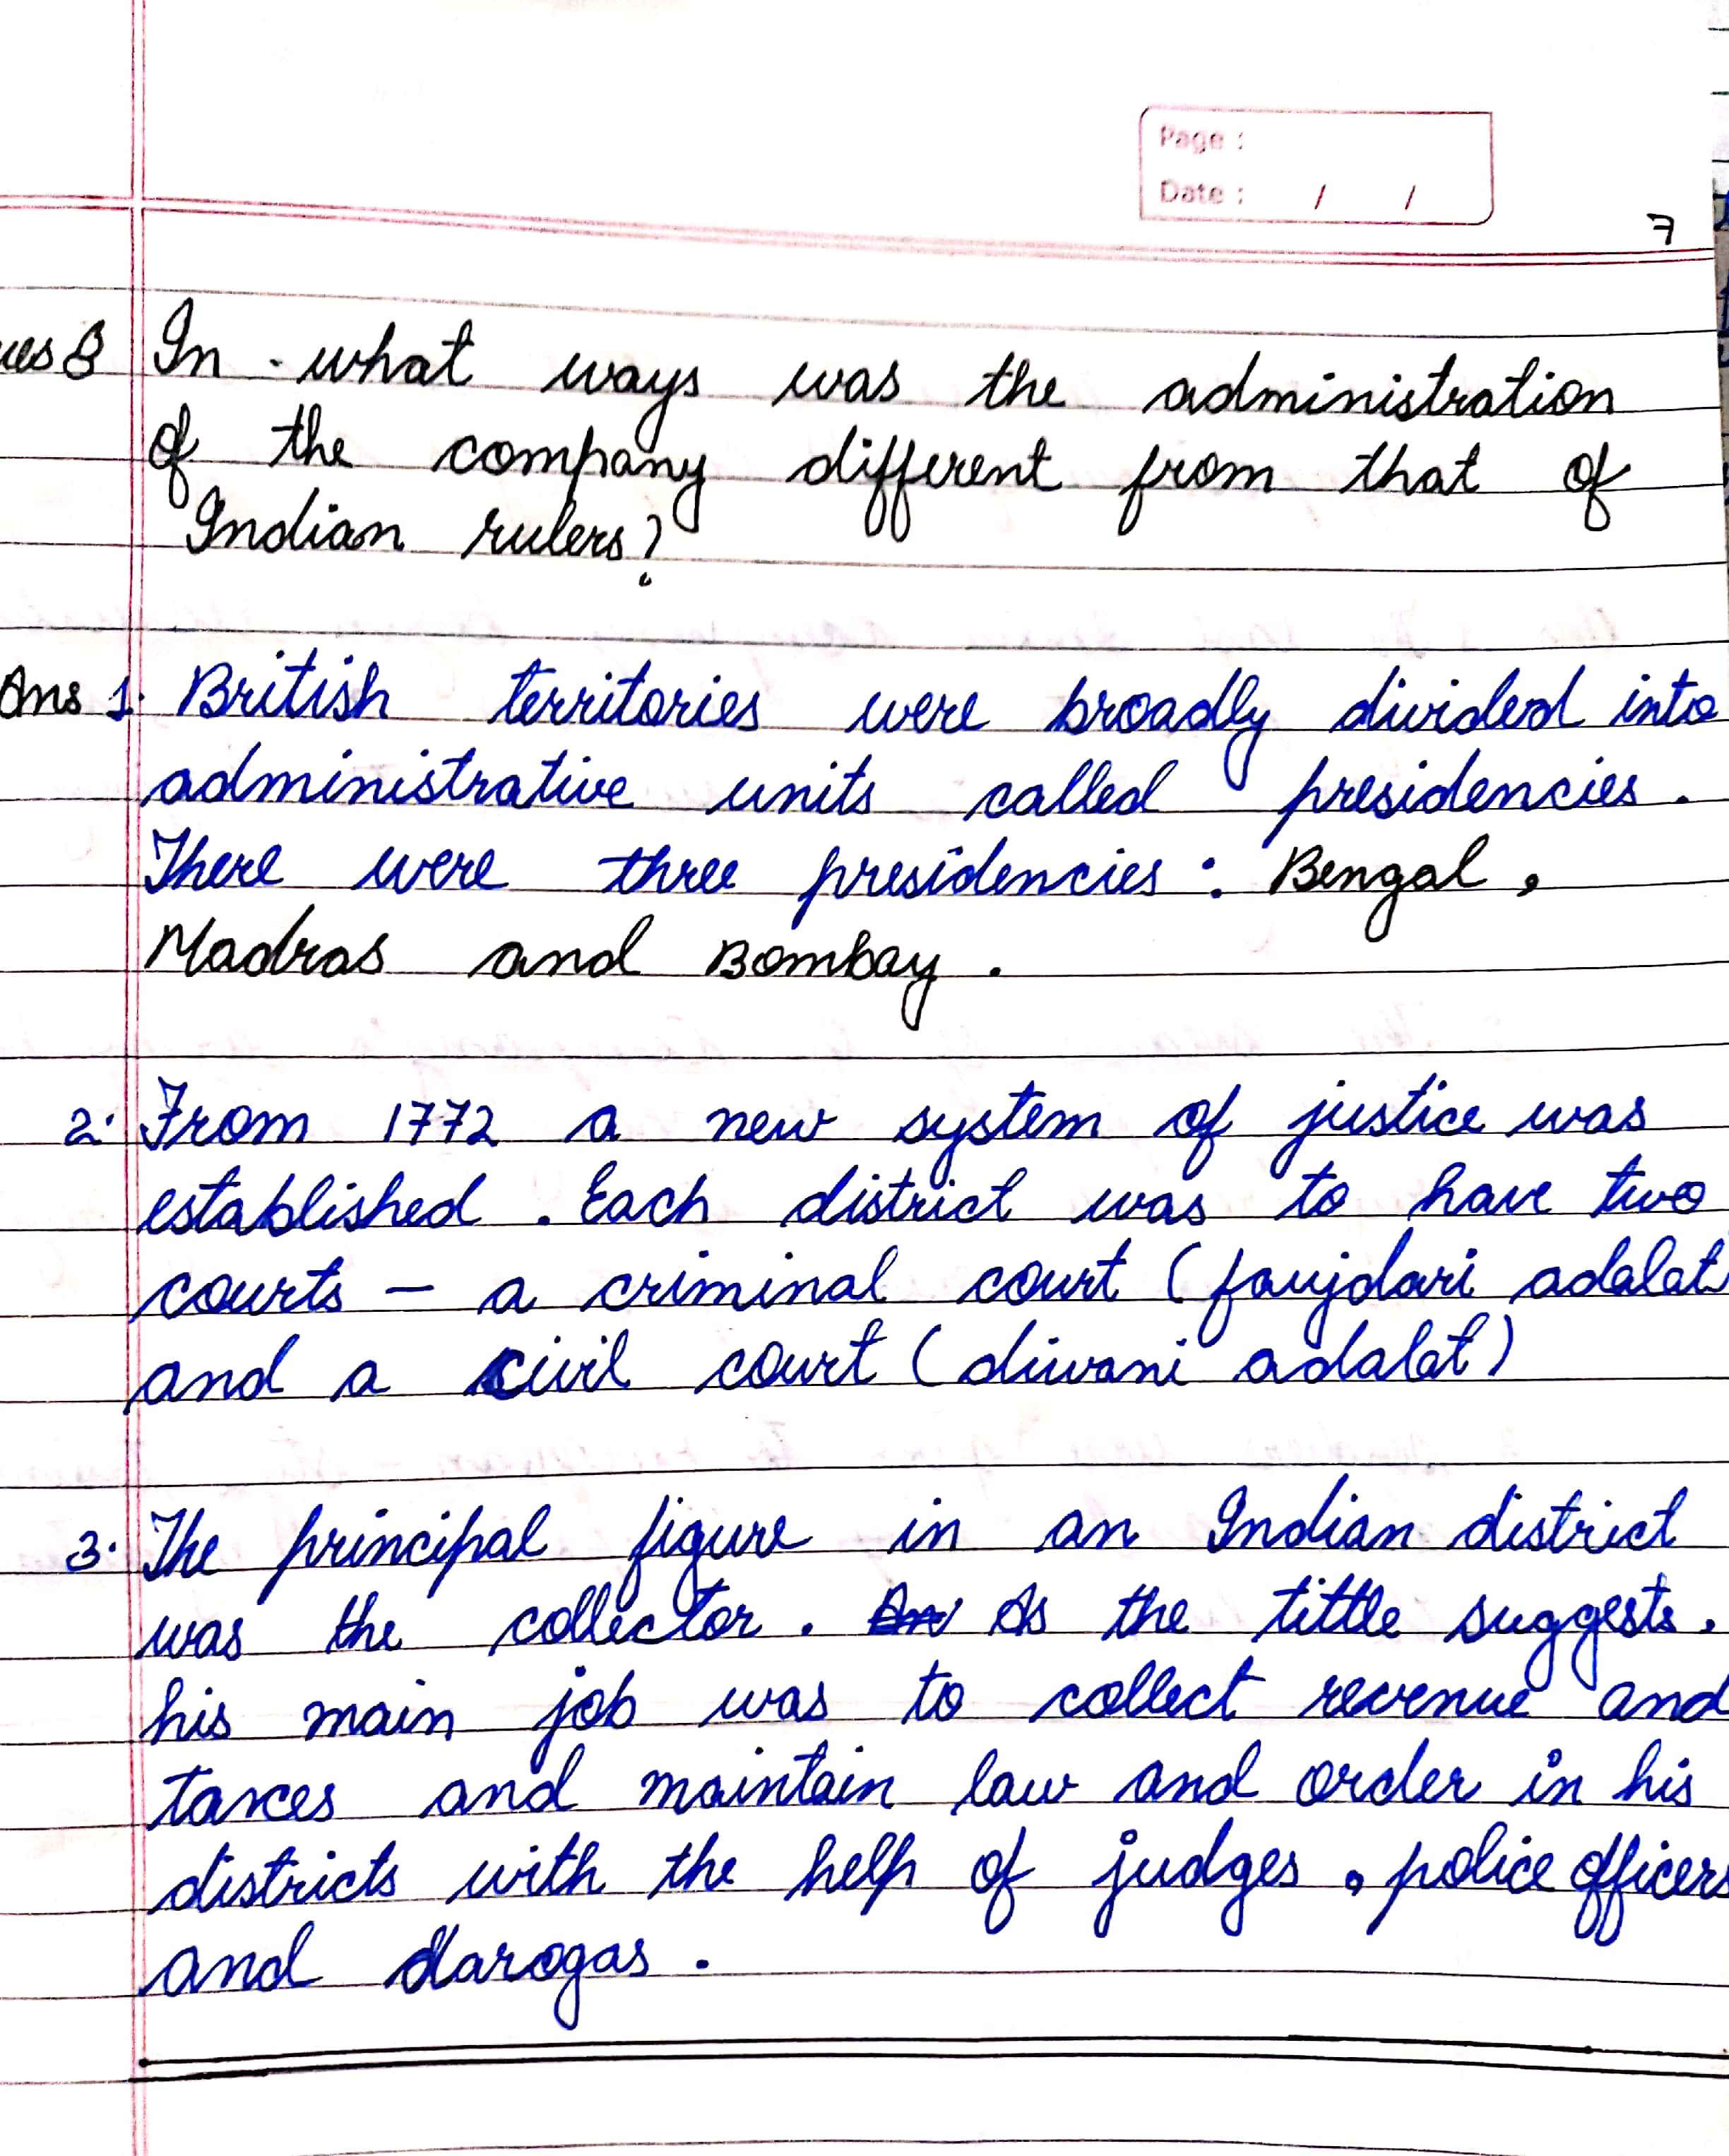 Page :
Date : / /
7
ues 8 In - what ways was the administration
of the company different from that of
Indian rulers?
Ans 1. British territories were broadly divided into
administrative units called presidencies.
There were three presidencies : Bengal ,
Madras and Bombay .
2. From 1772 a new system of justice was
established . Each district was to have two
courts – a criminal court ( faujdari adalat
and a civil court ( diwani adalat )
3. The principal figure in an Indian district
was the collector . As the tittle suggests .
his main job was to collect revenue and
taxes and maintain law and order in his
districts with the help of judges , police officers
and darogas .